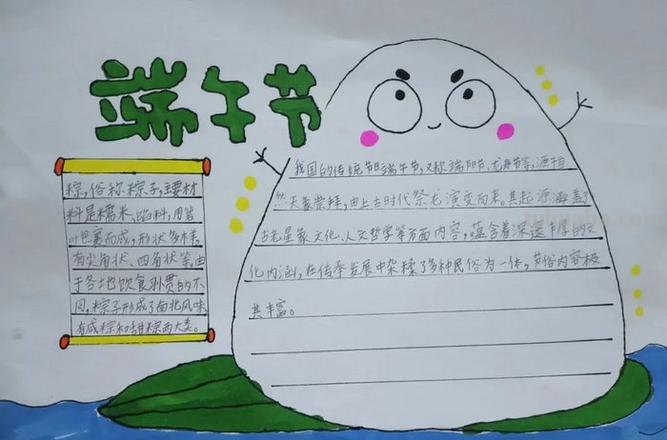 端午节
粽,俗称粽子,主要材
料是糯米、馅料,用箬
叶包裹而成,形状多样,
有尖角状、四角状等,由
于各地饮食习惯的不
同,粽子形成了南北风味,
有咸粽和甜粽两大类。
我国的传统节日端午节,又称端阳节、龙舟节等,源自
天象崇拜,由上古时代祭龙演变而来。其起源涵盖了
古老星象文化、人文哲学等方面内容,蕴含着深邃丰厚的文
化内涵,在传承发展中杂糅了多种民俗为一体,节俗内容极
其丰富。